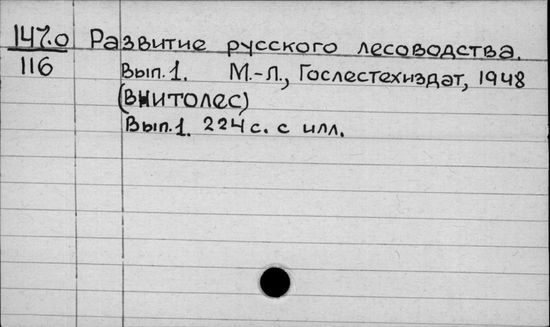 147.0 Развитие русского лесоводства.
116 Вып.1. М.-Л., Гослестехиздат, 1948
(ВНИТОЛЕС)
Вып.1. 224 с. с илл.